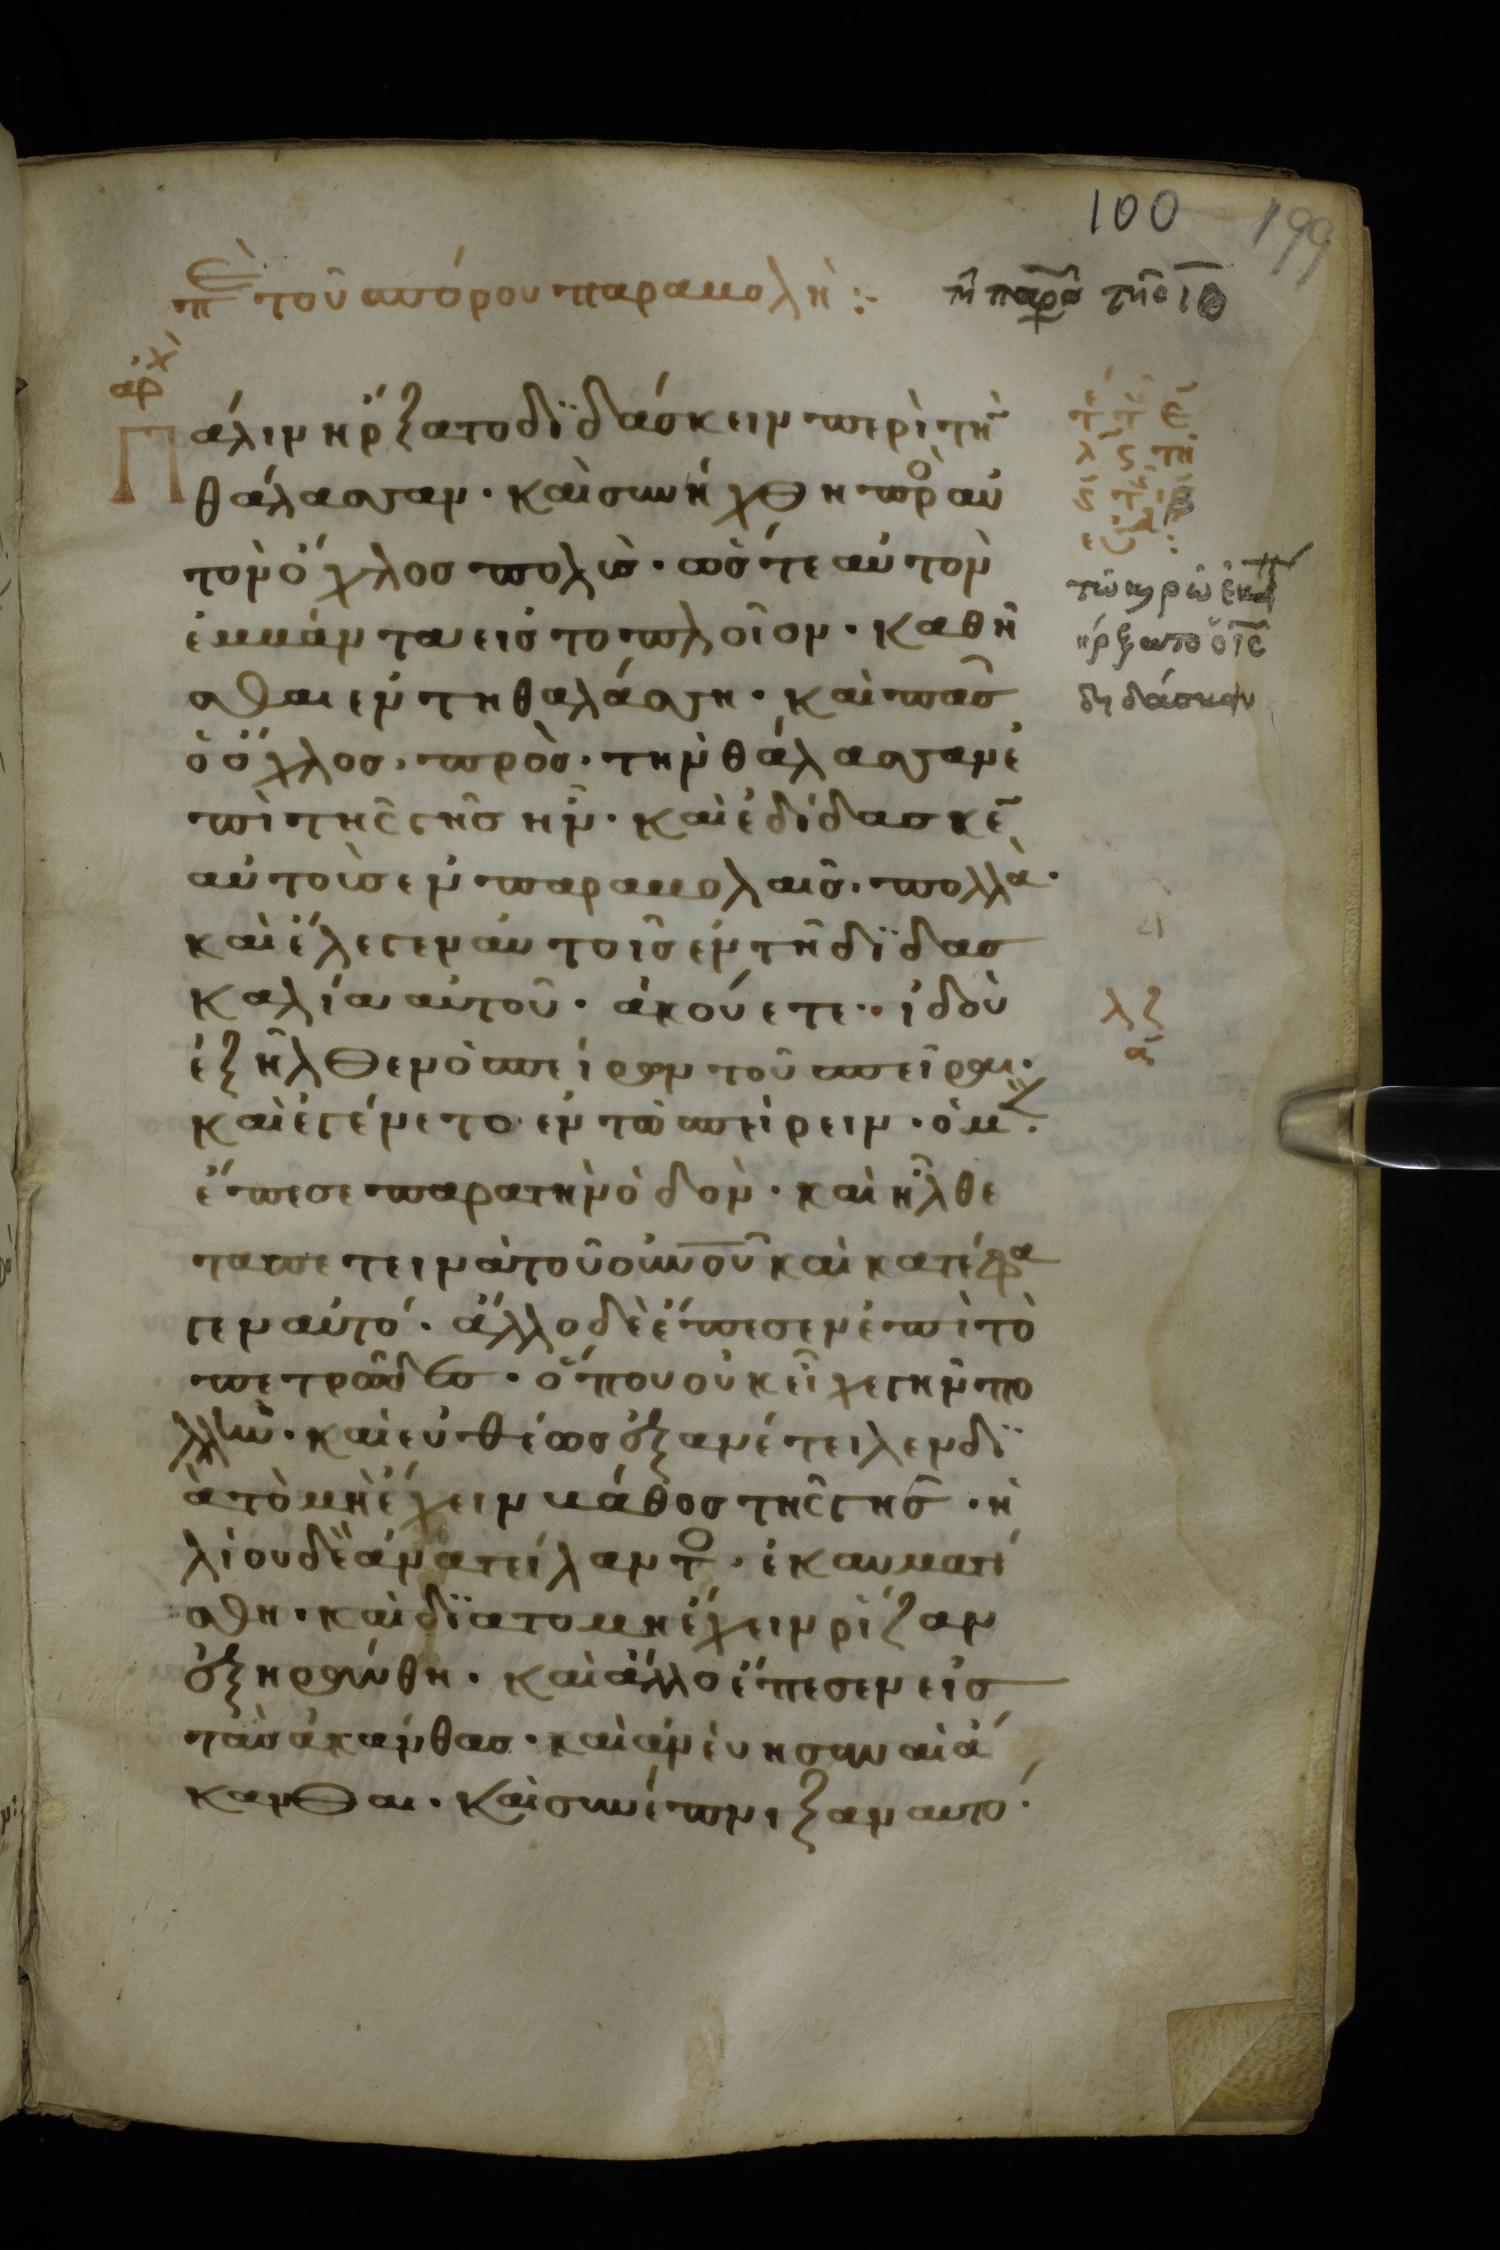 100 199
τοῦ σπόρου παραβολὴ :-
τῇ παρα τῆς ιθ
αρχ
Πάλιν ἤρξατο διδάσκειν περὶ τὴν
θάλασσαν · καὶ συνήχθη πρὸς αὐ
τὸν ὄχλος πολὺς · ὥστε αὐτὸν
ἐμβάντα εἰς το πλοῖον · καθῆ
σθαι εν τη θαλάσση · καὶ πᾶς
ὁ ὄχλος · πρὸς · τὴν θάλασσαν ἐ
πὶ τῆς γῆς ἦν · καὶ ἐδίδασκεν
αὐτοὺς εν παραβολαῖς · πολλὰ ·
καὶ ἔλεγεν αὐτοῖς ἐν τῆ διδασ
καλία αὐτοῦ · ἀκούετε · ἰδοὺ
ἐξῆλθεν ὁ σπείρων τοῦ σπεῖραι ·
καὶ ἐγένετο εν τῶ σπείρειν · ὁ μὲν
ἔπεσε παρα τὴν ὁδὸν · καὶ ἦλθε
τα πετεινὰ τοῦ οὐνοῦ καὶ κατέφα
γεν αὐτό · ἄλλο δὲ ἔπεσεν ἐπὶ τὸ
πετρῶδες · ὅπου οὐκ εἶχε γῆν πο
λλὴν · καὶ ευθέως ἐξανέτειλεν δι
ὰ τὸ μὴ ἔχειν βάθος τῆς γῆς · ἡ
λίου δὲ ἀνατείλαντος · ἐκαυματί
σθη · καὶ δια το μη ἔχειν ρίζαν
ἐξηράνθη · καὶ ἄλλο ἔπεσεν εἰς
τὰς ἀκάνθας · καὶ ἀνέβησαν αἱ ἄ
κανθαι · καὶ συνέπνιξαν αυτό ·
λζ
α
ἤρξατο ὁ ις
διδάσκειν